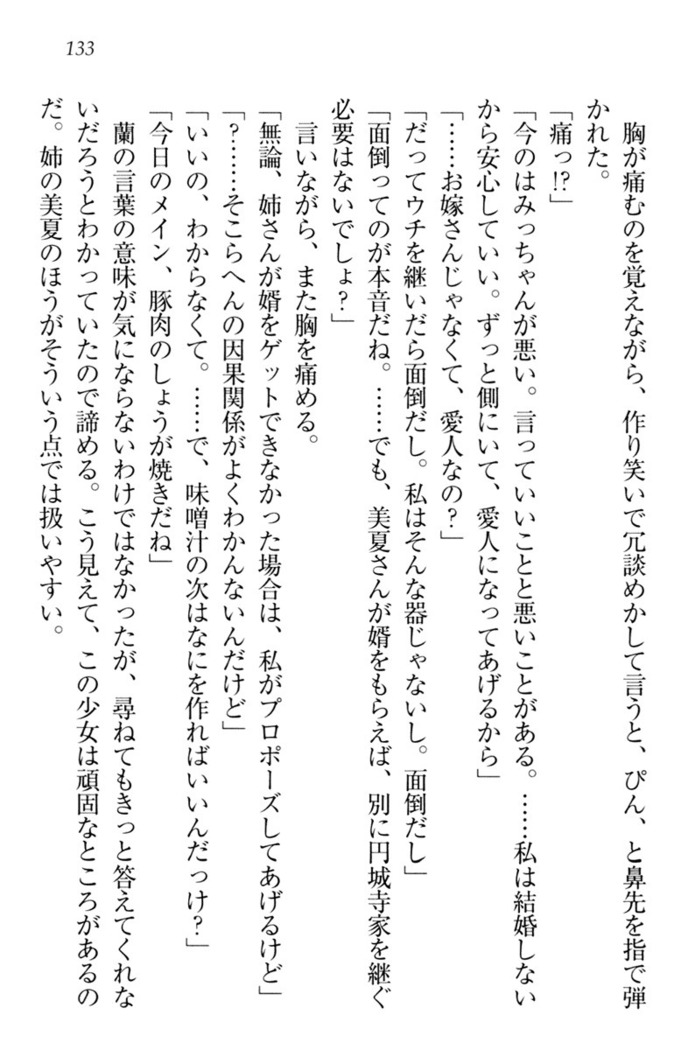 133
胸が痛むのを覚えながら、作り笑いで冗談めかして言うと、ぴん、と鼻先を指で弾
かれた。
「痛っ!?」
「今のはみっちゃんが悪い。言っていいことと悪いことがある。……私は結婚しない
から安心していい。ずっと側にいて、愛人になってあげるから」
「……お嫁さんじゃなくて、愛人なの?」
「だってウチを継いだら面倒だし。私はそんな器じゃないし。面倒だし」
「面倒ってのが本音だね。……でも、美夏さんが婿をもらえば、別に円城寺家を継ぐ
必要はないでしょ?」
言いながら、また胸を痛める。
「無論、姉さんが婿をゲットできなかった場合は、私がプロポーズしてあげるけど」
「?……そこらへんの因果関係がよくわかんないんだけど」
「いいの、わからなくて。……で、味噌汁の次はなにを作ればいいんだっけ?」
「今日のメイン、豚肉のしょうが焼きだね」
蘭の言葉の意味が気にならないわけではなかったが、尋ねてもきっと答えてくれな
いだろうとわかっていたので諦める。こう見えて、この少女は頑固なところがあるの
だ。姉の美夏のほうがそういう点では扱いやすい。